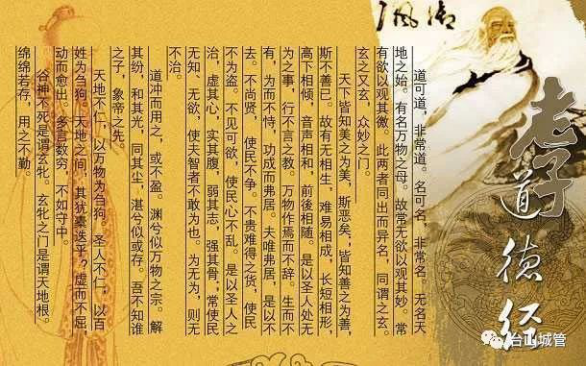 御风
老子
道德经
道可道，非常道。名可名，非常名。无名天
地之始。有名万物之母。故常无欲以观其妙。常
有欲以观其微。此两者同出而异名，同谓之玄。
玄之又玄，众妙之门。
天下皆知美之为美，斯恶矣；皆知善之为善，
斯不善已。故有无相生，难易相成，长短相形，
高下相倾，音声相和，前後相随。是以圣人处无
为之事，行不言之教。万物作焉而不辞。生而不
有，为而不恃，功成而弗居。夫唯弗居，是以不
去。不尚贤，使民不争。不贵难得之货，使民
不为盗。不见可欲，使民心不乱。是以圣人之
治，虚其心，实其腹，弱其志，强其骨；常使民
无知、无欲，使夫智者不敢为也。为无为，则无
不治。
道冲而用之，或不盈。渊兮似万物之宗。解
其纷，和其光，同其尘，湛兮似或存。吾不知谁
之子，象帝之先。
天地不仁，以万物为刍狗。圣人不仁，以百
姓为刍狗。天地之间，其犹橐迭乎？虚而不屈
动而愈出。多言数穷，不如守中。
谷神不死是谓玄牝。玄牝之门是谓天地根。
绵绵若存，用之不勤。
台山城管